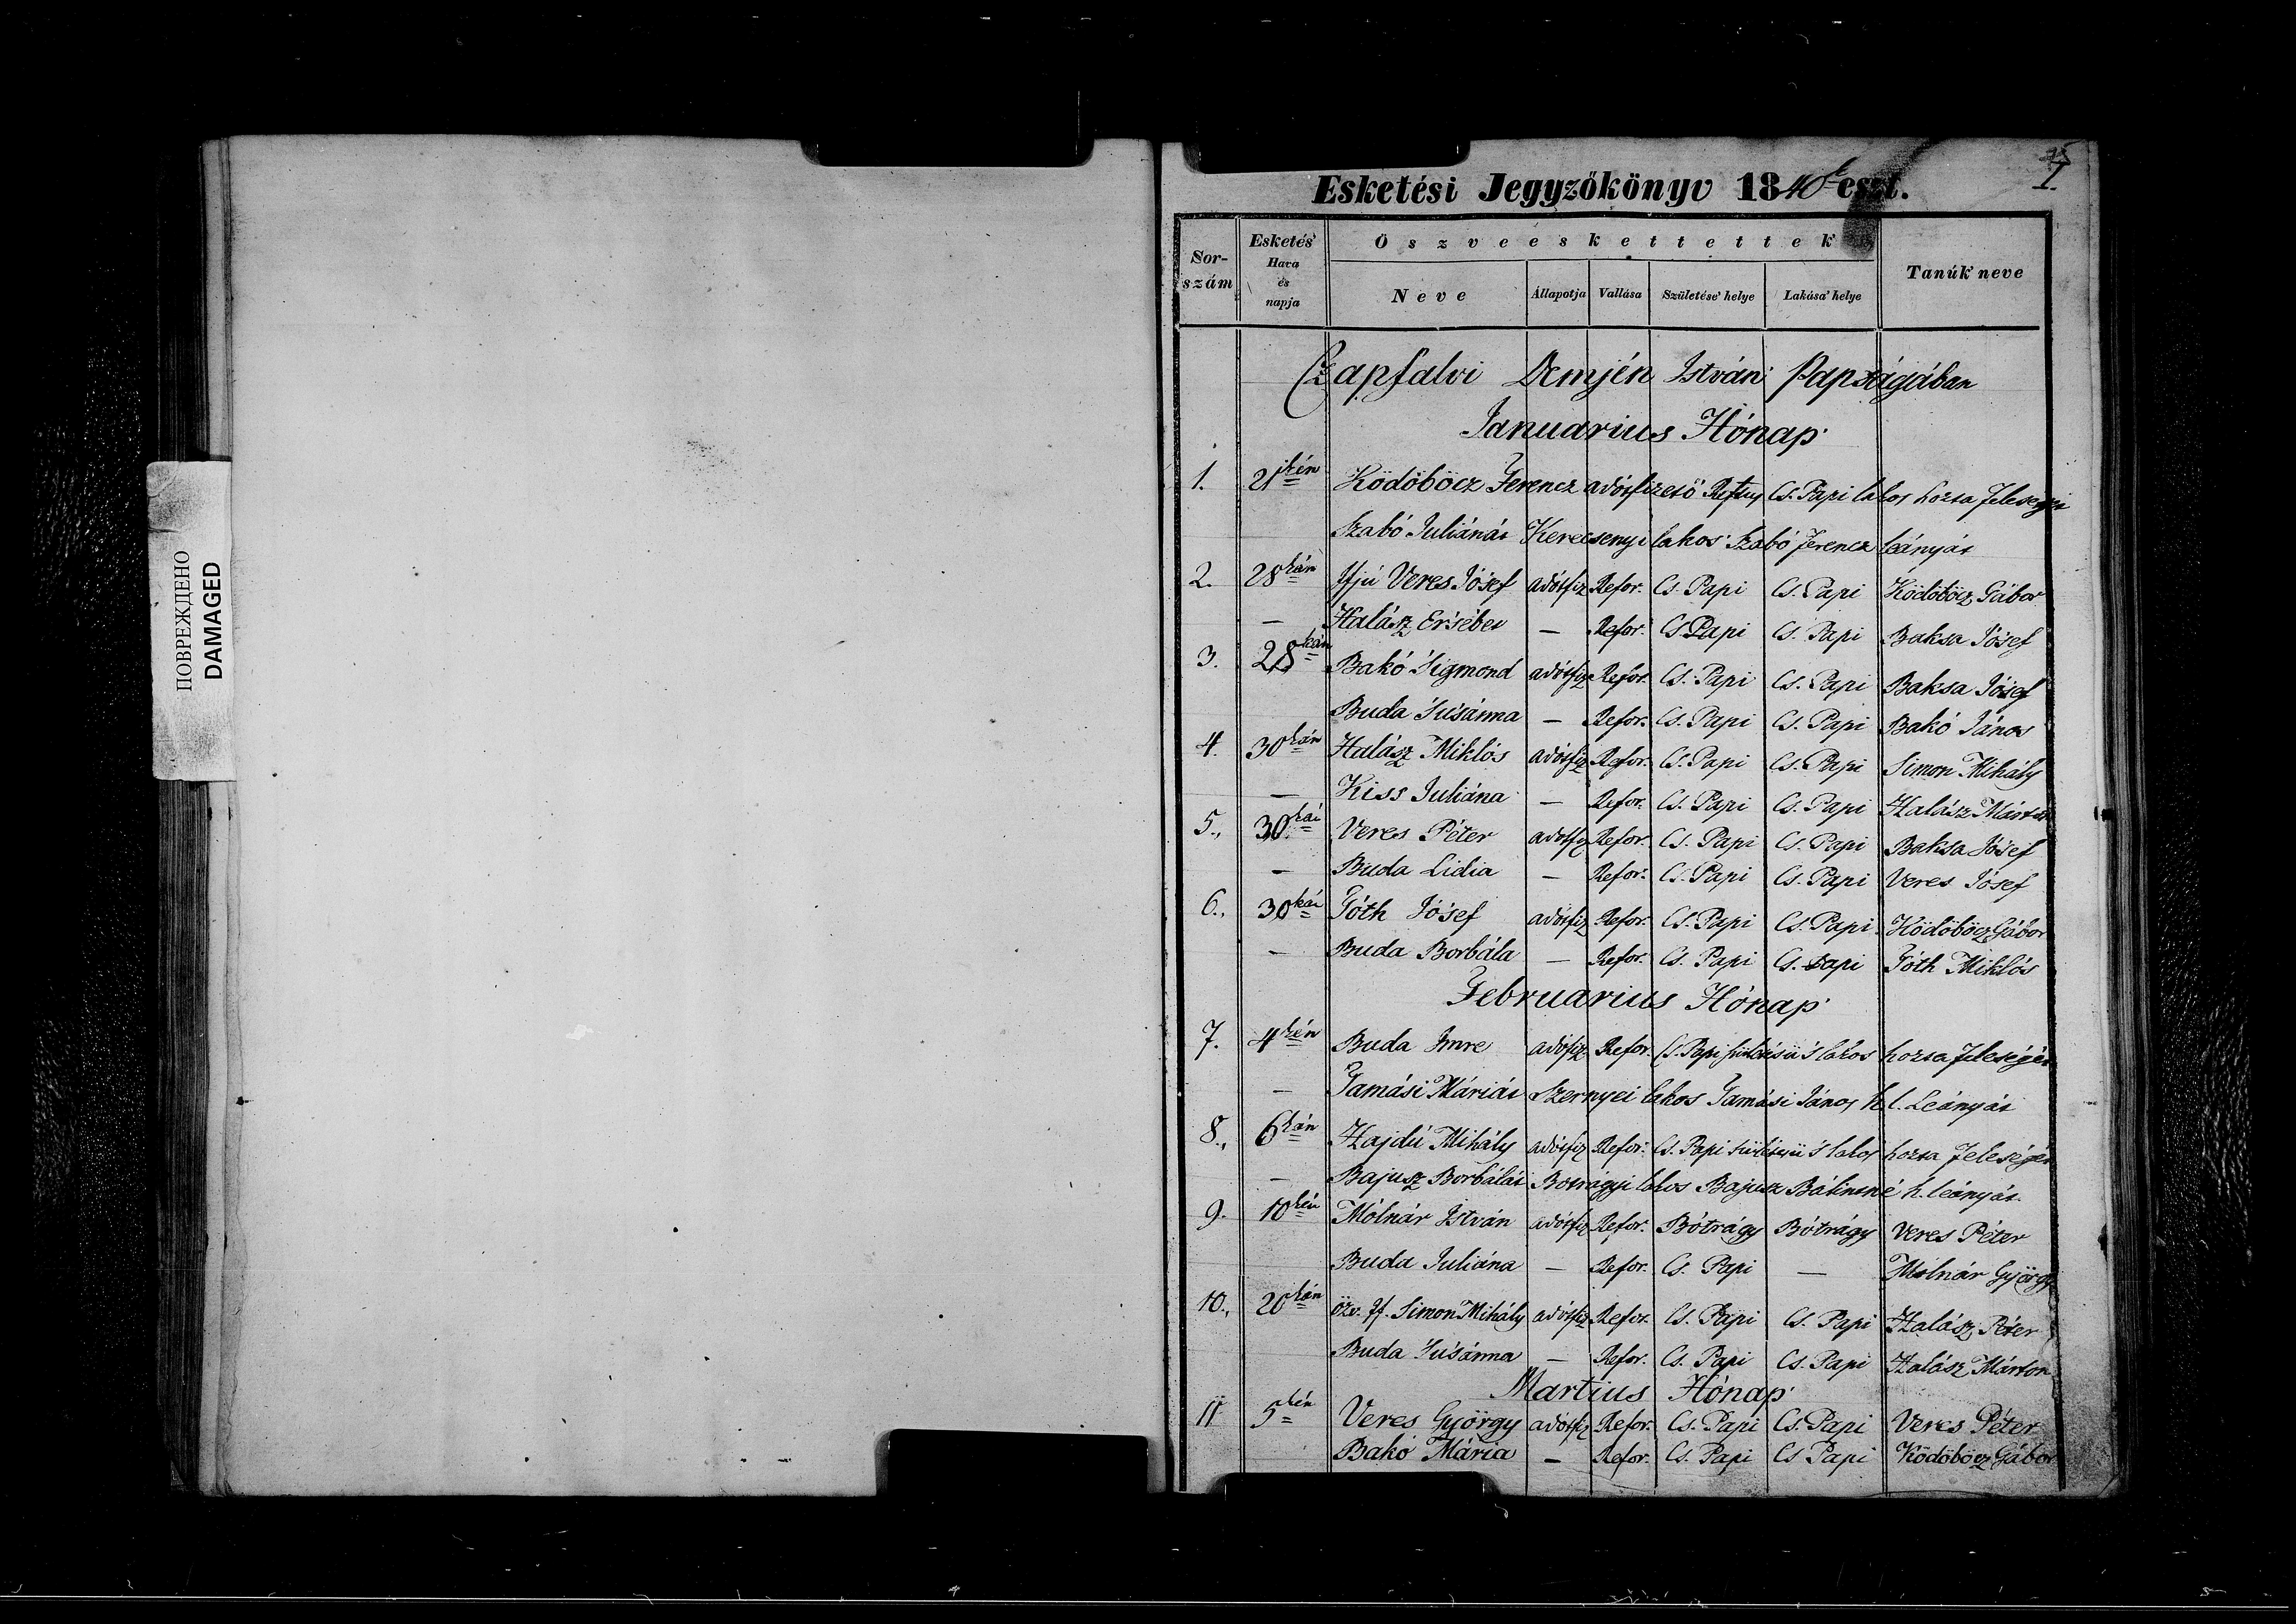 ПОВРЕЖДЕНО
DAMAGED
1.
Esketési Jegyzőkönyv 1840k eszt.
Sor-szám Esketés' Hava és napja Öszveeskettettek Tanúk' neve
Neve Állapotja Vallása Születése' helye Lakása' helye
Czapfalvi Demjén István Papságában
Januarius Hónap
1. 21ikén Ködöböcz Ferencz adósfizető Refus Cs. Papi lakos hozta feleségén
Szabó Juliánát Kerecsenyi lakos Szabó Ferencz leányát
2. 28kán Ifjú Veres Jósef adósfiz Refor. Cs. Papi Cs. Papi Ködöböcz Gábor
— Halász Ersébet — Refor. Cs. Papi Cs. Papi Baksa Jósef
3. 28kán Bakó Sigmond adósfiz Refor. Cs. Papi Cs. Papi Baksa Jósef
Buda Susánna — Refor. Cs. Papi Cs. Papi Bakó János
4. 30kán Halász Miklós adósfiz Refor. Cs. Papi Cs. Papi Simon Mihály
— Kiss Juliána — Refor. Cs. Papi Cs. Papi Halász Márton
5., 30kán Veres Péter adósfiz Refor. Cs. Papi Cs. Papi Baksa Jósef
— Buda Lidia — Refor. Cs. Papi Cs. Papi Veres Jósef
6., 30kán Tóth Jósef adósfiz Refor. Cs. Papi Cs. Papi Ködöböcz Gábor
— Buda Borbála — Refor. Cs. Papi Cs. Papi Tóth Miklós
Februarius Hónap
7. 4kén Buda Imre adósfiz Refor. Cs. Papi születésü 's lakos hozta feleségén
— Tamási Máriát Szernyei lakos Tamási János h. l. Leányát
8., 6kán Hajdú Mihály adósfiz Refor. Cs. Papi születésü 's lakos hozta feleségén
— Bajusz Borbálát Botrágyi lakos Bajusz Bálintné h. leányát
9. 10kén Mólnár István adósfiz Refor. Bótrágy Bótrágy Veres Péter
Buda Juliána — Refor. Cs. Papi — Mólnár György
10., 20kán özv. If. Simon Mihály adósfiz Refor. Cs. Papi Cs. Papi Halász Péter
Buda Susánna — Refor. Cs. Papi Cs. Papi Halász Márton
Martius Hónap
11 5kén Veres György adósfiz Refor. Cs. Papi Cs. Papi Veres Péter
Bakó Mária — Refor. Cs. Papi Cs Papi Ködöböcz Gábor